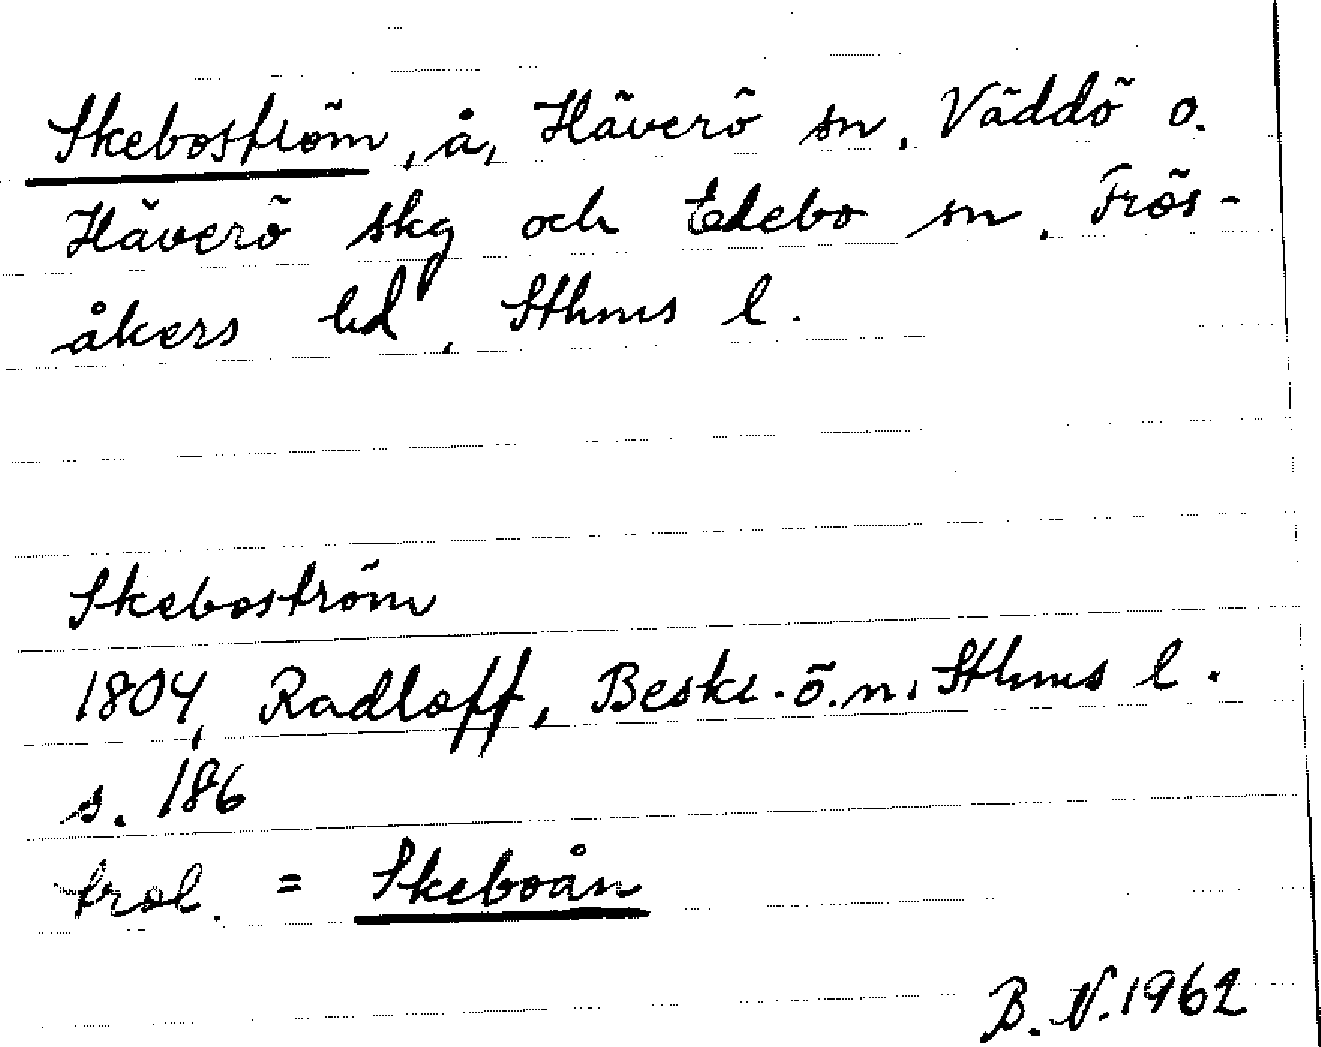 Skeboström, å, Häverö sn, Väddö o.
Häverö skg och Edebo sn, Frös-
åkers hd, Sthms l.
Skeboström
1804, Radloff, Beskr. ö. n. Sthms l.
s. 186
trol. = Skeboån
B. N. 1962